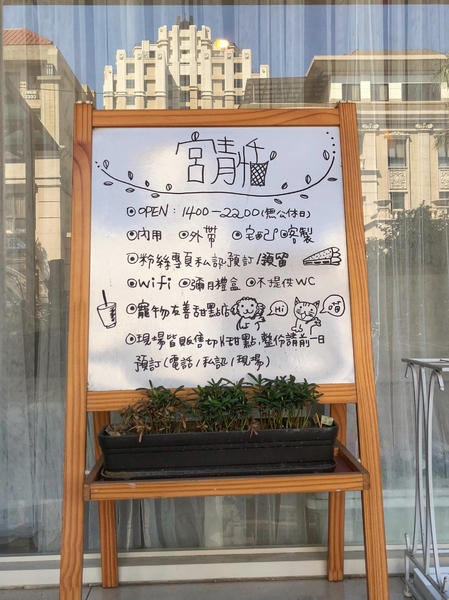 宮青忹
◉OPEN：1400－2200(無公休日)
◉內用 ◉外帶 ◉宅配 ◉客製
◉粉絲專頁私訊預訂/預留
◉wifi ◉彌月禮盒 ◉不提供WC
◉寵物友善甜點店 Hi 喵
◉現場皆販售切片甜點.整份請前一日
預訂(電話/私訊/現場)